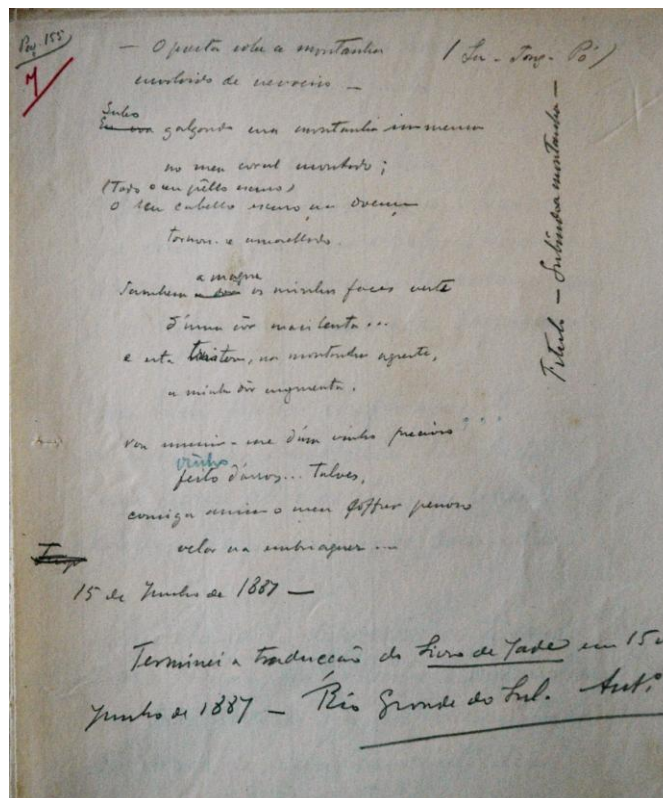 Pag. 155
7
— O poeta sobe a montanha (Su-Tong-Pó)
envolvido de nevoeiro —
Subo
Eu vou galgando uma montanha immensa
no meu corcel montado;
(Todo o seu pêllo escuro)
O seu cabello escuro na doença
tornou-se amarellado.
a magua
Tambem a dor as minhas faces veste
d'uma côr macilenta...
e esta tristeza, na montanha agreste,
a minha dôr augmenta.
Vou em-me d'um vinho precioso...
vinho
feito d'arroz... Talvez,
consiga assim o meu soffrer penoso
velar na embriaguez...
15 de Junho de 1887 —
Terminei a traducção do Livro de Jade em 15
Junho de 1887 — Rio Grande do Sul. Ant.º
Titulo — Subindo a montanha —